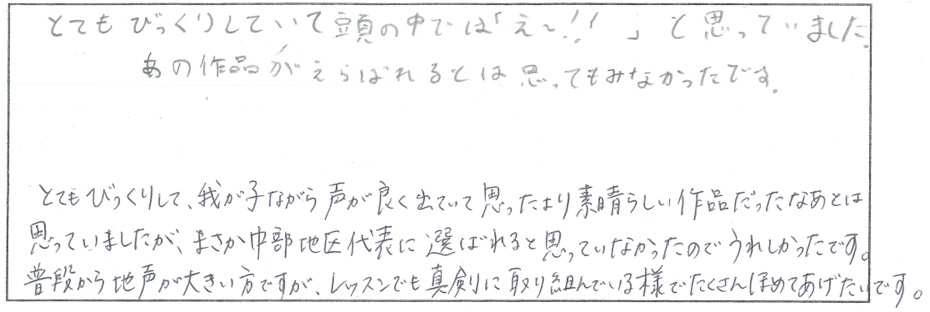 とてもびっくりしていて頭の中では「え〜!!」と思っていました。
あの作品がえらばれるとは思ってもみなかったです。
とてもびっくりして、我が子ながら声が良く出ていて思ったより素晴らしい作品だったなあとは
思っていましたが、まさか中部地区代表に選ばれると思っていなかったのでうれしかったです。
普段から地声が大きい方ですが、レッスンでも真剣に取り組んでいる様でたくさんほめてあげたいです。